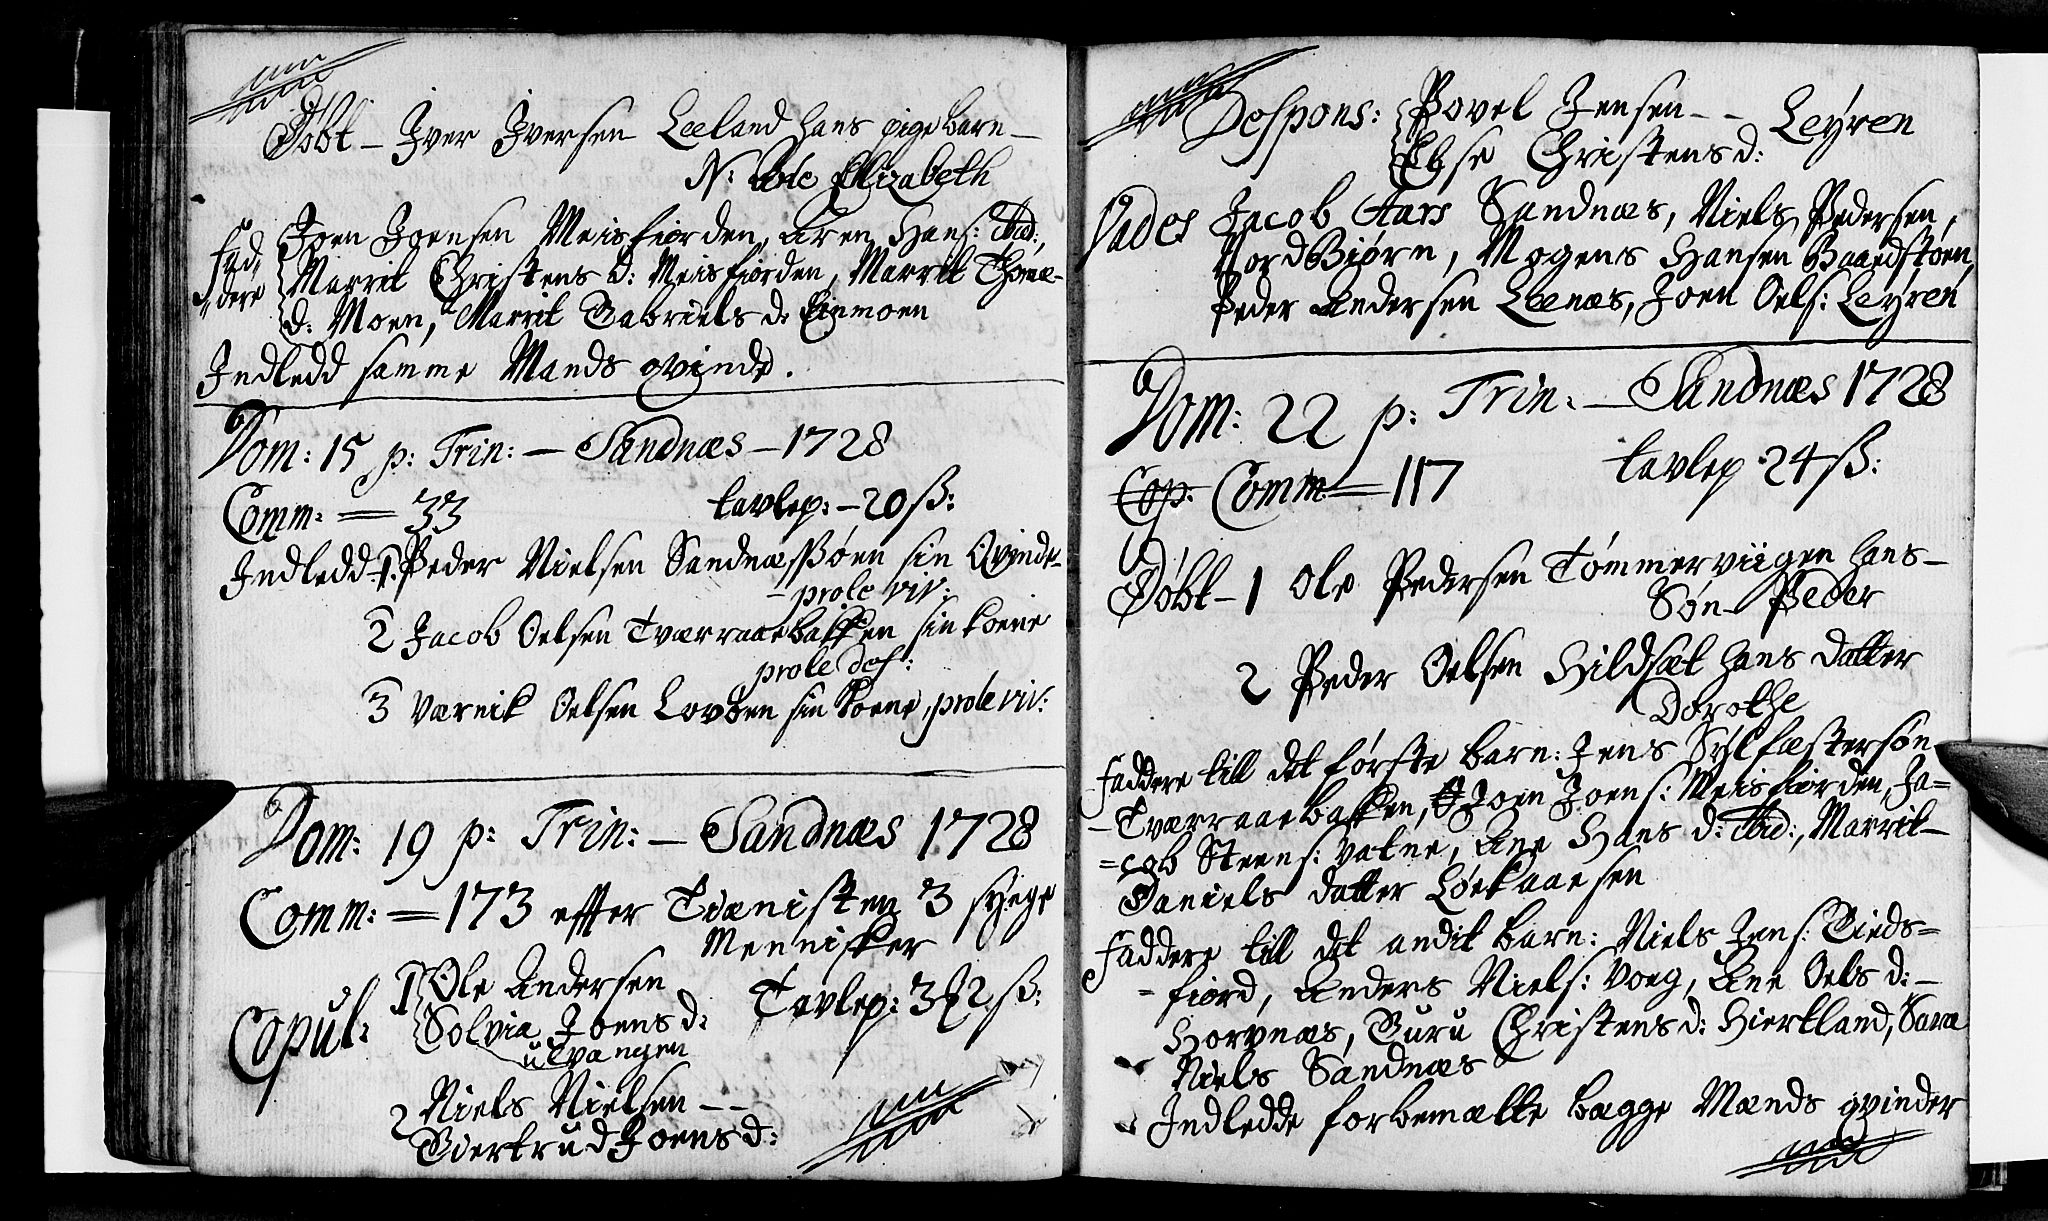 Døbt – Iver Iversen Leeland hans pige barn –
N: Elizabeth
Fad, Joen Joensen Meisfiorden, Aren Hans: Ibid:,
dere Marrit Christens d: Meisfiorden, Marrit Thomæ-
d: Moen, Marrit Gabriels d: Einmoen
Indledd samme Mands qvinde.
Dom: 15 p: Trin: – Sandnæs – 1728
Comm: = 33 tavlep: – 20 ß:
Indledd 1. Peder Nielsen Sandnæssøen sin Qvinde
– prole viv:
2 Jacob Oelsen Tværraaebakken sin koene
prole def:
3 Værnik Oelsen Lovøen sin koene, prole viv:
Dom: 19 p: Trin: – Sandnæs 1728
Comm: = 173 effter Tiænisten 3 syege
Mennisker
Copul: 1 Ole Andersen Tavlep:
Solvia Joens d:
ulvangen
2 Niels Nielsen – –
Giertrud Joens d:
Despons: Povel Jensen – – Leyren
Else Christens d:
Vades Jacob Aars Sandnæs, Niels Pedersen,
NordBiørn, Mogens Hansen Baardstøen,
Peder Andersen Leenæs, Joen Oels: Leyren
Dom: 22 p: Trin: – Sandnæs 1728
Cop: Comm: = 117 tavlep 24 ß:
Døbt – 1 Ole Pedersen Tømmerviigen hans –
Søn – Peder
2 Peder Oelsen Hildsæt hans datter
Dorothe
Faddere till det første barn: Jens Sylfæstersøn
– Tværraaebakken, Joen Joens: Meisfiorden, Ja=
=cob Steens: Vatne, Ane Hans d: Ibid:, Marrit –
Daniels datter Løekaaesen
Faddere till det andit barn: Niels Jens: Tieds=
= fiord, Anders Niels: Voeg, Ane Oels d: –
Horvnæs, Guru Christens d: Hiertland, Saræ
Niels Sandnæs
Indledde forbemælte begge Mænds qvinder